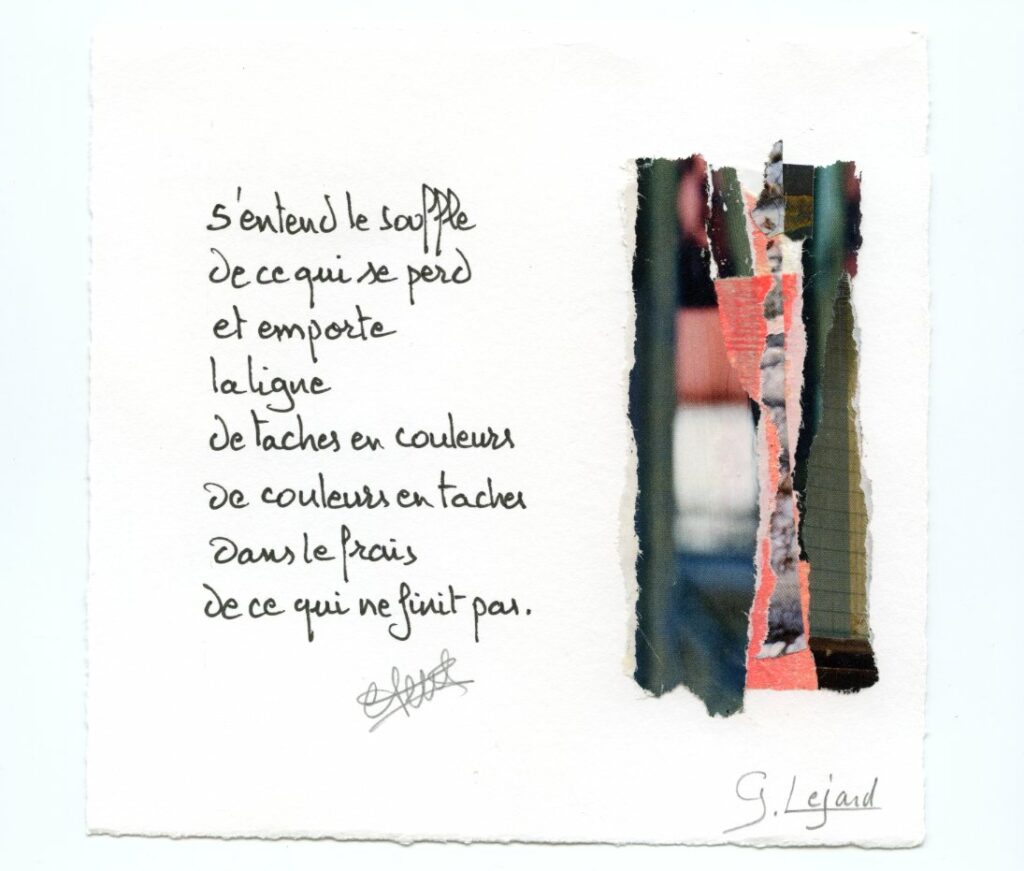 s'entend le souffle
de ce qui se perd
et emporte
la ligne
de taches en couleurs
de couleurs en taches
dans le frais
de ce qui ne finit pas.
G. Lejard